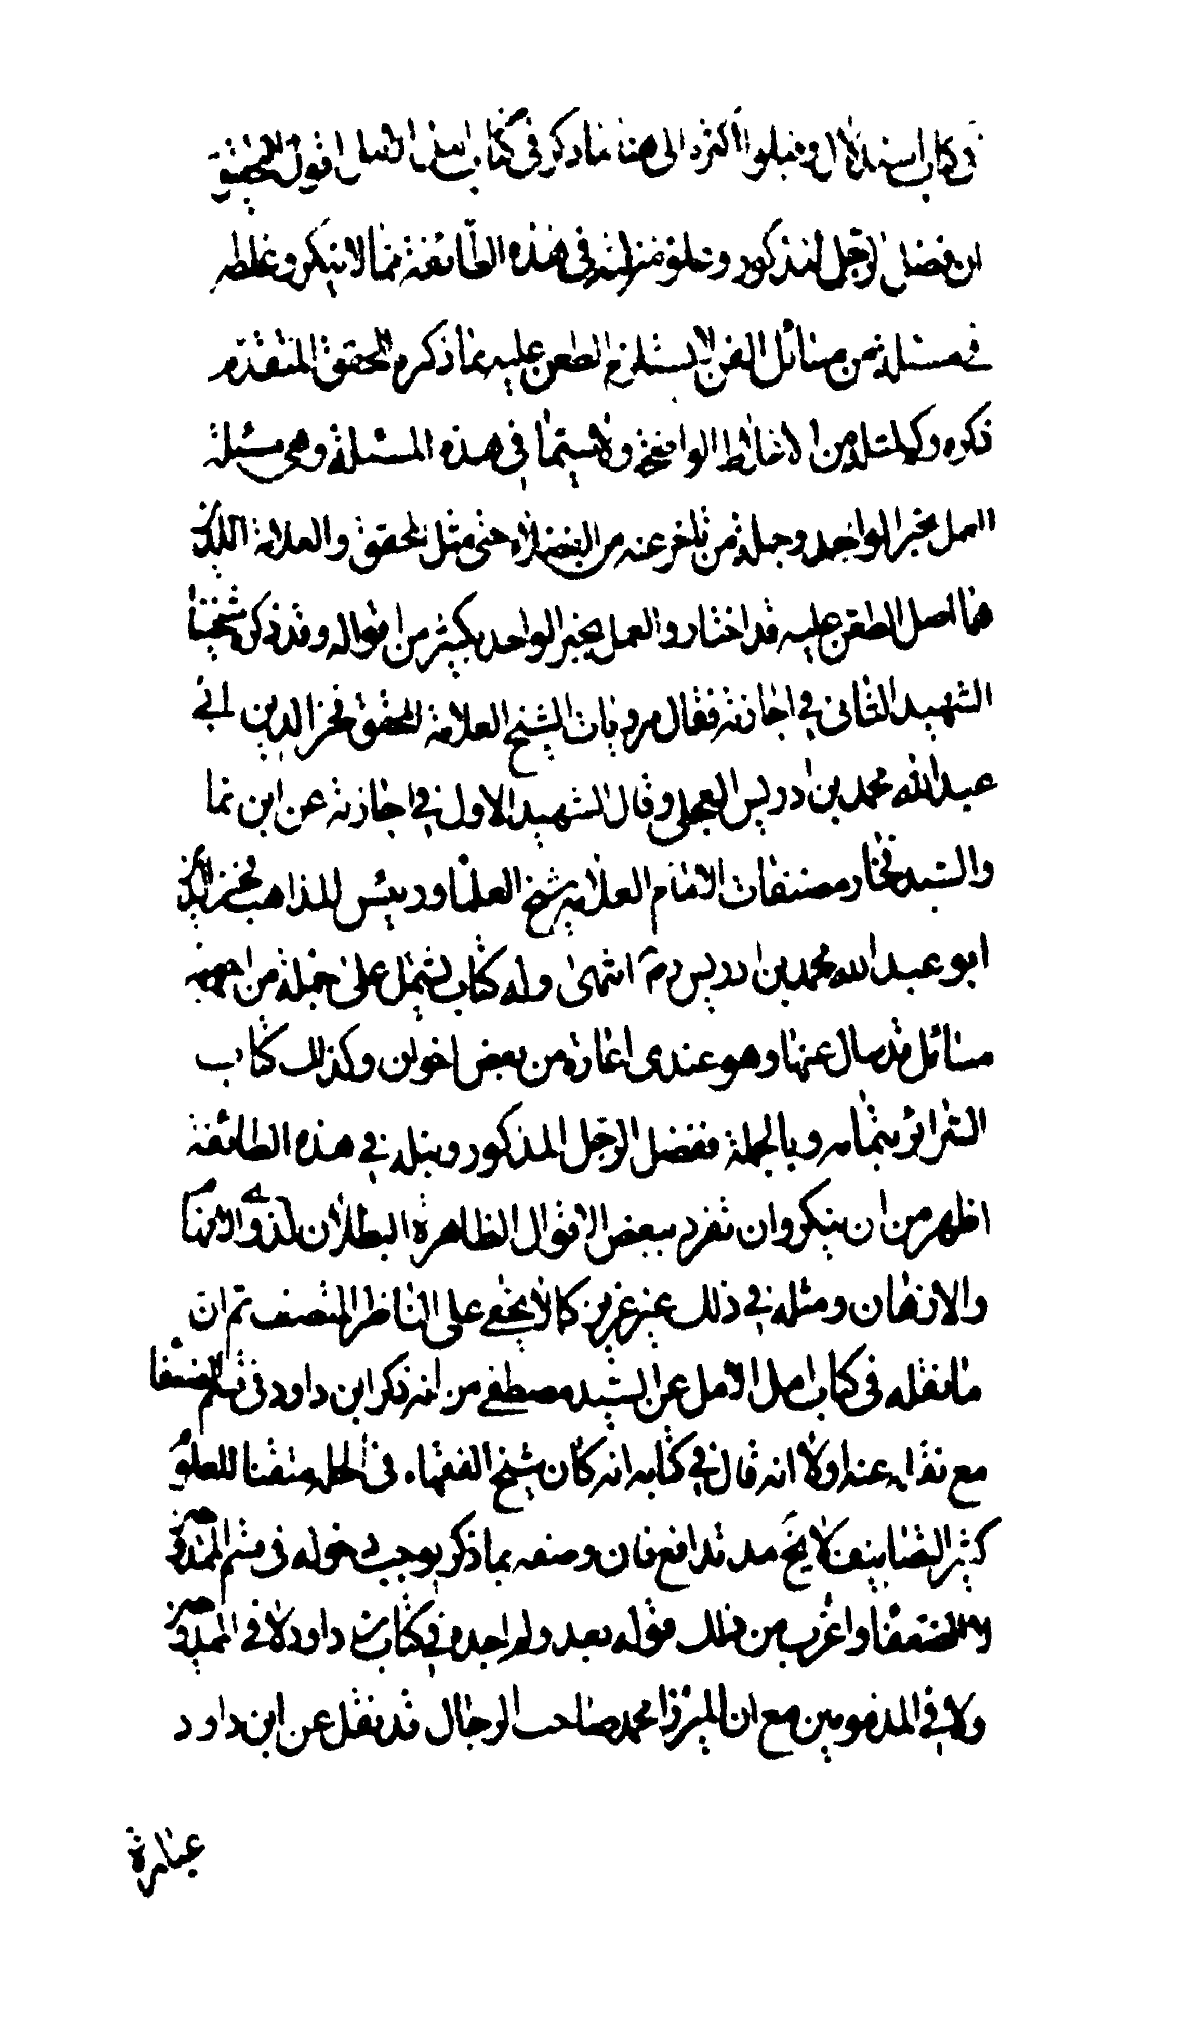 في كتاب استدلال وقبلوا اكثره الى هنا ما ذكر في كتاب امل الآمل اقول التحقيق
ان فضل الرجل المذكور وعلو منزلته في هذه الطائفة مما لا ينكر وغلطه
في مسئلة من مسائل الفن لا يستلزم الطعن عليه بما ذكره المحقق المتقدم
ذكره وكم لمثله من الاغاليط الواضحة ولا سيما في هذه المسئلة وهي مسئلة
العمل بخبر الواحد وجملة من تاخر عنه من الفضلاء حتى مثل المحقق والعلامة اللذين
هما اصل الطعن عليه قد اختاروا العمل بخبر الواحد بكثير من اقواله وقد ذكره شيخنا
الشهيد الثاني في اجازته فقال مرويات الشيخ العلامة المحقق فخر الدين ابي
عبد الله محمد بن ادريس العجلي وقال الشهيد الاول في اجازته عن ابن نما
والسيد فخار مصنفات الامام العلامة شيخ العلماء ورئيس المذاهب فخر الدين
ابو عبد الله محمد بن ادريس ره انتهى وله كتاب يشتمل على جملة من اجوبة
مسائل قد سال عنها وهو عندي اعاره من بعض اخوان وكذلك كتاب
السرائر بتمامه وبالجملة ففضل الرجل المذكور ونبله في هذه الطائفة
اظهر من ان ينكر وان تفرد ببعض الاقوال الظاهرة البطلان لذوي الافهام
والاذهان ومثله في ذلك غير عزيز كما لا يخفى على الناظر المنصف ثم ان
ما نقله في كتاب امل الآمل عن السيد مصطفى من انه ذكر ابن داود في قسم الضعفا
مع نقله عنه اولا انه قال في كتابه انه كان شيخ الفقهاء في الحلة متقنا للعلوم
كثير التصانيف لا يخ من تدافع فان وصفه بما ذكر يوجب دخوله في قسم الممدوحين
لا الضعفا واغرب من ذلك قوله بعد ولم اجده في كتاب ابن داود لا في الممدوحين
ولا في المذمومين مع ان الميرزا محمد صاحب الرجال قد نقل عن ابن داود
عبارة